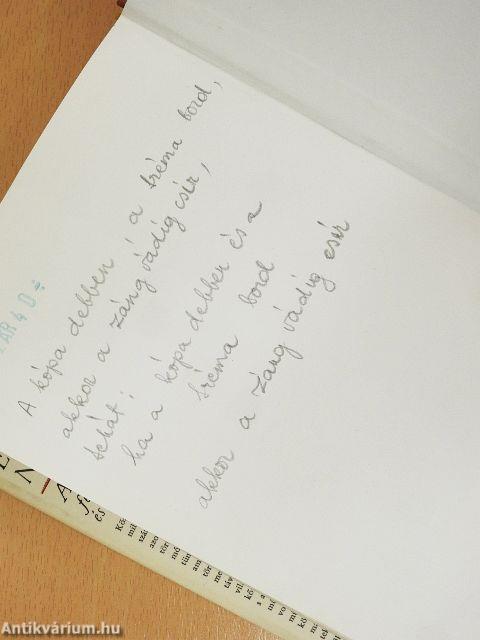 A kópa debben a tréma bord,
akkor a záng vádig csir,
tehát:
ha a kópa debben és a
tréma bord
akkor a záng vádig csir
ÁR 40÷
Antikvárium.hu